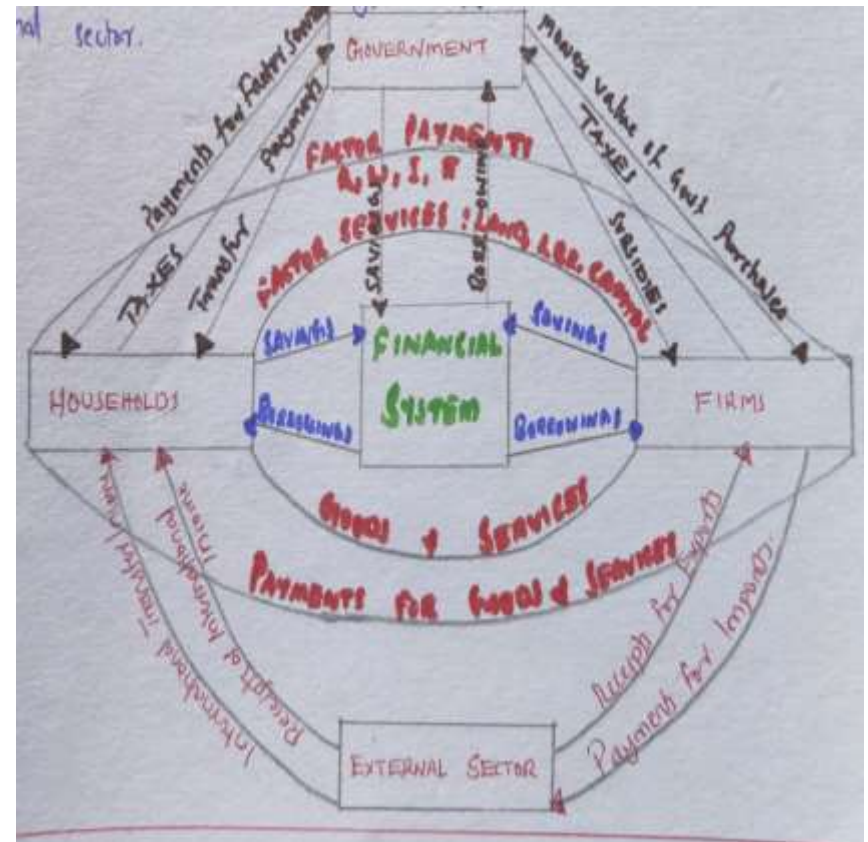 nal sector.
GOVERNMENT
Payments for Factor
TAXES
Transfer Payments
money value of Govt Purchases
TAXES
SUBSIDIES
FACTOR PAYMENTS
R, W, I,
FACTOR SERVICES : LAND, CAPITAL
SAVINGS
BORROWING
SAVINGS
FINANCIAL
SYSTEM
SAVINGS
HOUSEHOLDS
BORROWINGS
BORROWINGS
FIRMS
GOODS & SERVICES
PAYMENTS FOR GOODS & SERVICES
International Transfer
Receipts of International Income
Receipts for Exports
Payments for Imports.
EXTERNAL SECTOR